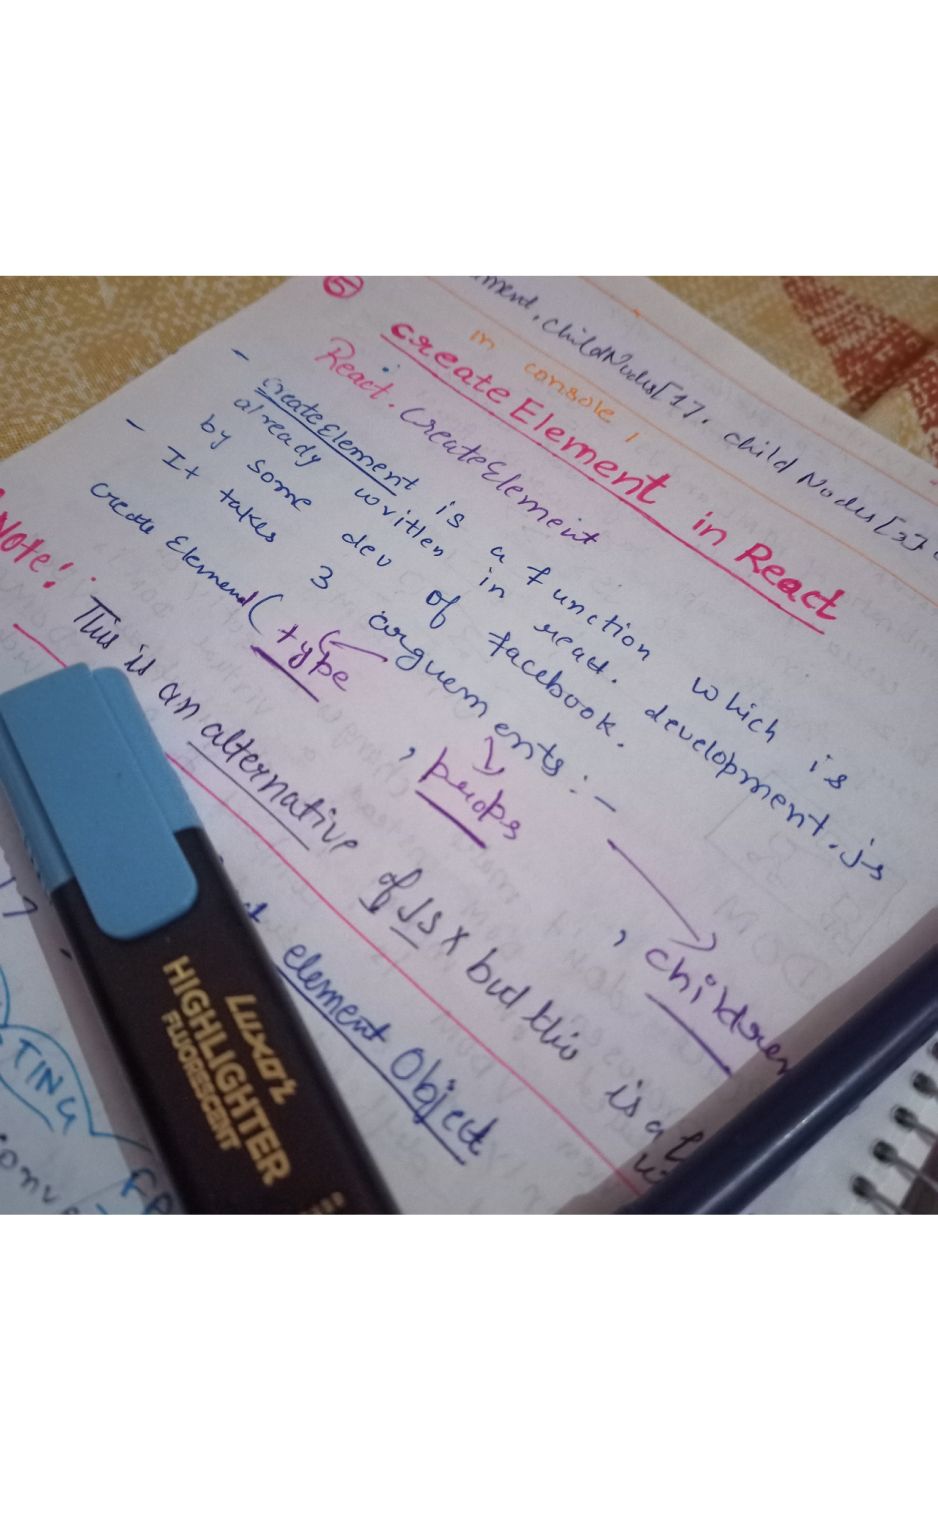 ment. childNodes[1]. child Nodes[3]
in console
5
createElement in React
React. CreateElement
- createElement is a function which is
already written in react. development.js
by some dev of facebook.
- It takes 3 arguements :-
create Element( type , props , children
Note! This is an alternative of JSX but this is a
element Object
Luxor
HIGHLIGHTER
FLUORESCENT
TING
conv